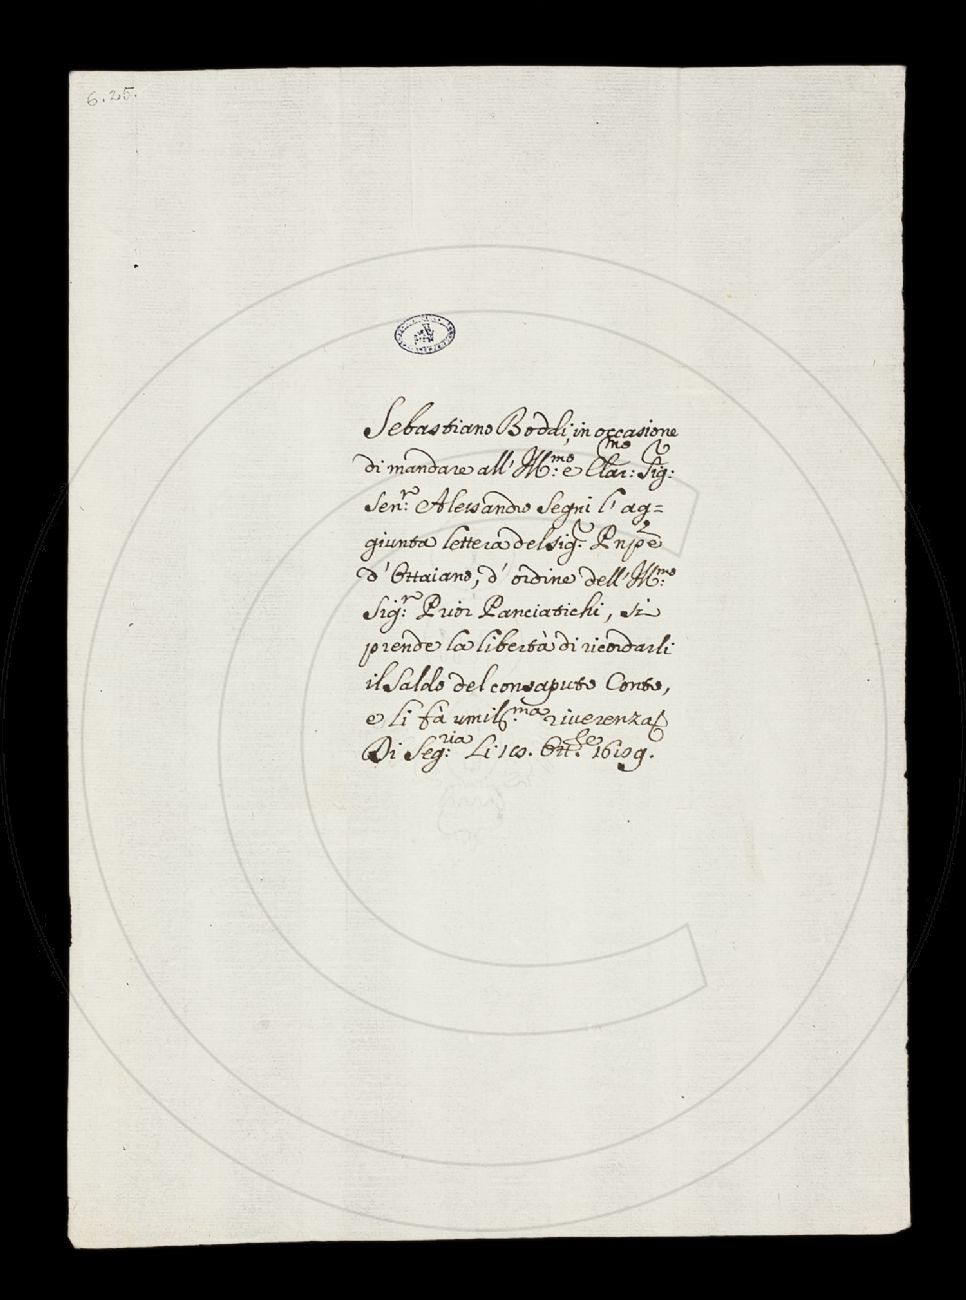 6.25.
Sebastiano Boddi, in occasione
di mandare all' Ill.mo e Clar.mo Sig:
Sen.r Alessandro Segni l' ag=
giunta lettera del Sig.r Pnpe
d' Ottaiano, d' ordine dell' Ill.mo
Sig.r Prior Panciatichi, si
prende la libertà di ricordarli
il saldo del consaputo Conto,
e li fà umiliss.ma riverenza
Di Seg.ria Li Ott.bre